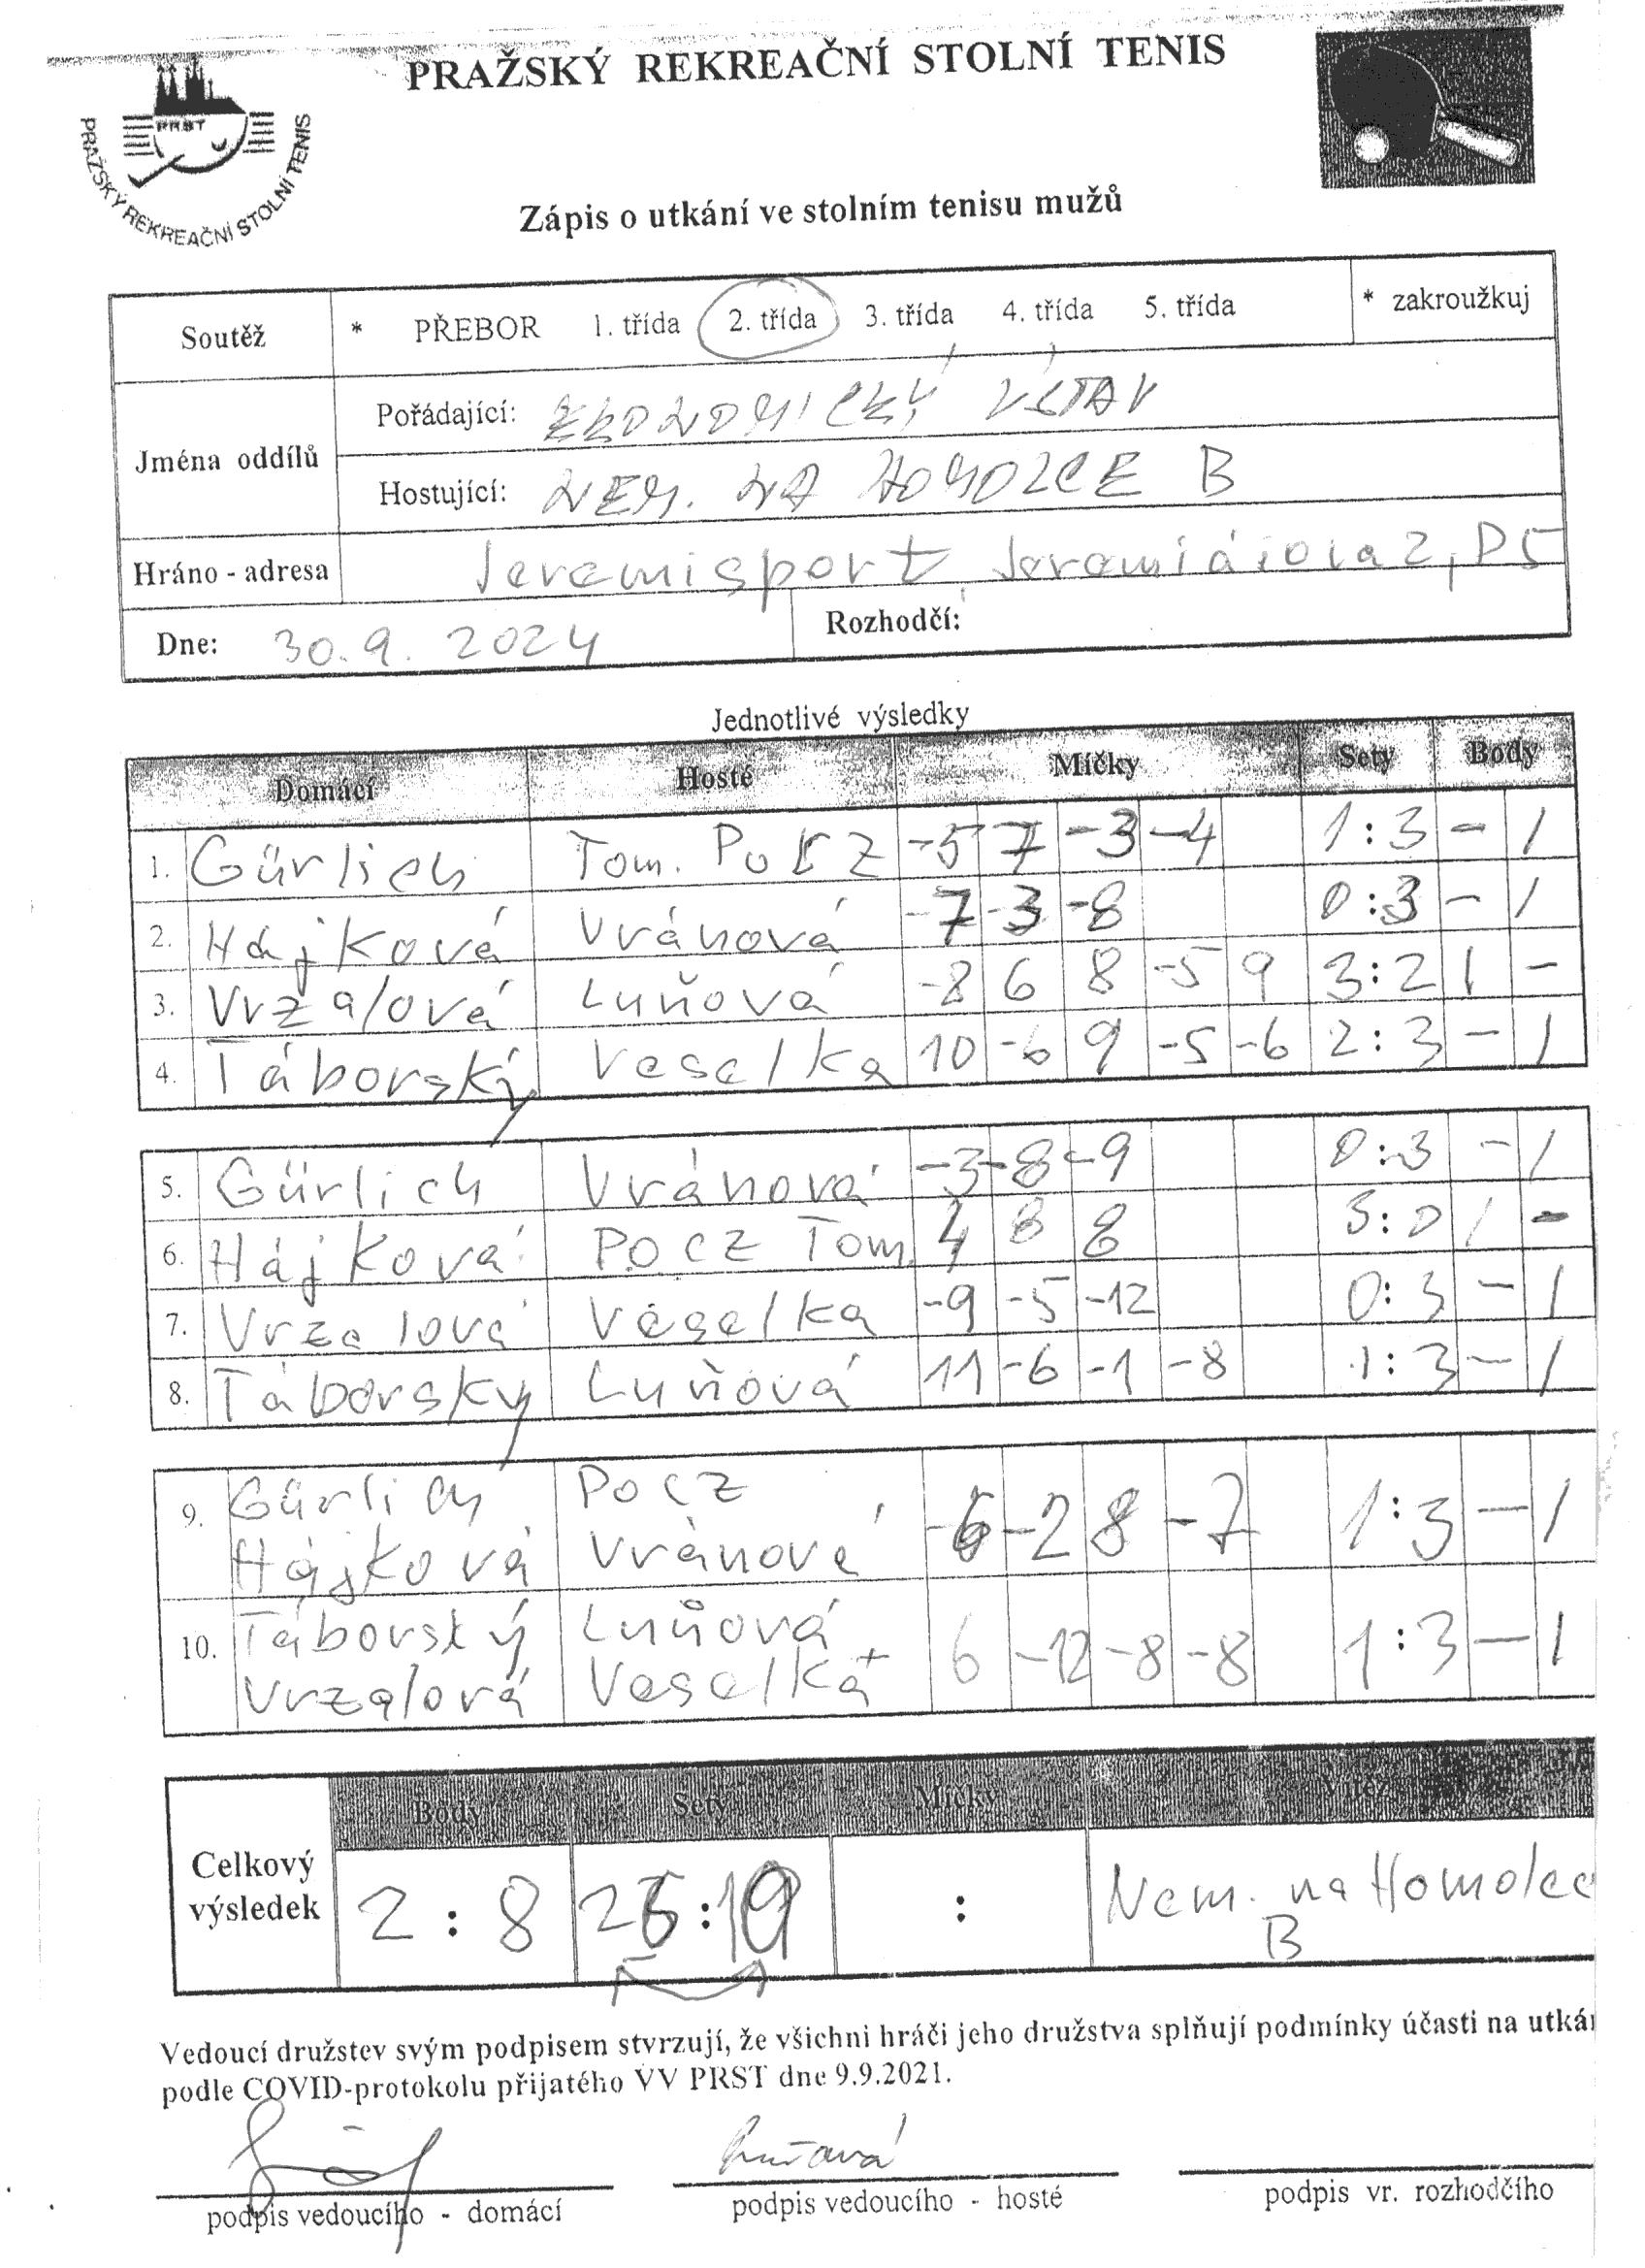 PRAŽSKÝ REKREAČNÍ STOLNÍ TENIS
PRST
PRAŽSKÝ REKREAČNÍ STOLNÍ TENIS
Zápis o utkání ve stolním tenisu mužů
Soutěž * PŘEBOR 1. třída 2. třída 3. třída 4. třída 5. třída * zakroužkuj
Jména oddílů
Pořádající: EKONOMICKÝ ÚSTAV
Hostující: NEM. NA HOMOLCE B
Hráno - adresa Jeremisport, P5
Dne: 30.9. 2024 Rozhodčí:
Jednotlivé výsledky
Domácí Hosté Míčky Sety Body
1. Gürlich Tom. Pocz -5 7 -3 -4 1:3 - 1
2. Hájková Vránová -7 -3 -8 0:3 - 1
3. Vrzalová Luňová -8 6 8 -5 9 3:2 1 -
4. Táborský Veselka 10 -6 9 -5 -6 2:3 - 1
5. Gürlich Vránová -3 -8 -9 0:3 - 1
6. Hájková Pocz Tom. 4 8 8 3:0 1 -
7. Vrzalová Veselka -9 -5 -12 0:3 - 1
8. Táborský Luňová 11 -6 -1 -8 1:3 - 1
9. Gürlich Pocz
Hájková Vránová -6 -2 8 -7 1:3 - 1
10. Táborský Luňová
Vrzalová Veselka 6 -12 -8 -8 1:3 - 1
Body Sety Míčky Vítěz
Celkový výsledek 2 : 8 : Nem. na Homolce
B
Vedoucí družstev svým podpisem stvrzují, že všichni hráči jeho družstva splňují podmínky účasti na utkán
podle COVID-protokolu přijatého VV PRST dne 9.9.2021.
Luňová
podpis vedoucího - domácí podpis vedoucího - hosté podpis vr. rozhodčího